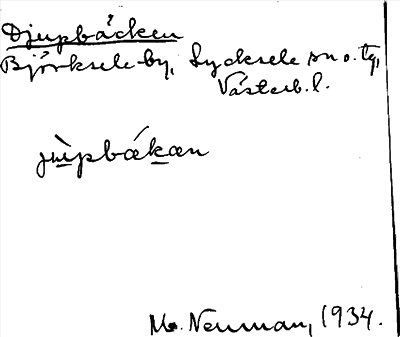 Djupbäcken
Björksele by, Lycksele sn o. tg,
Västerb. l.
jùpbákan
Neuman, 1934.